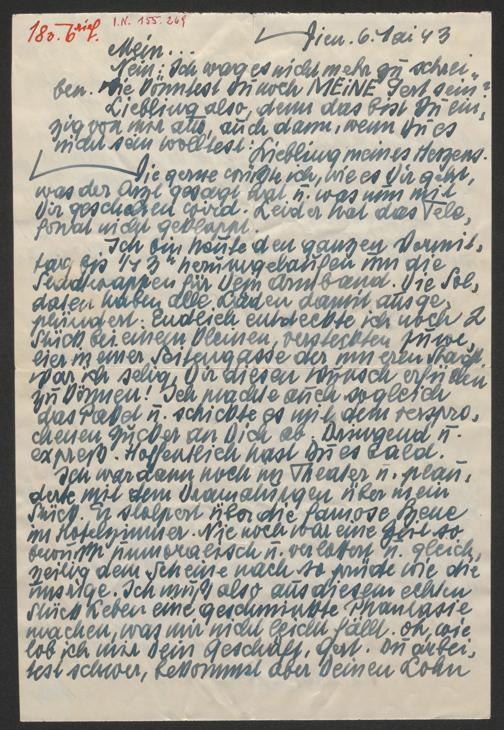 180. Brief.
I.N. 155.269
Wien. 6. Mai 43
Mein...
Nein: Ich wag es nicht mehr zu schrei-
ben. Wie könntest Du noch MEINE Gert sein?
Liebling also, denn das bist Du ein-
zig von mir aus, auch dann, wenn Du es
nicht sein wolltest: Liebling meines Herzens.
Wie gerne wüsste ich, wie es Dir geht,
was der Arzt gesagt hat u. was nun mit
Dir geschehen wird. Leider hat das Tele-
fonat nicht geklappt.
Ich bin heute den ganzen Vormit-
tag bis 1/2 3 h herumgelaufen um die
Stadtwappen für Dein Armband. Die Sol-
daten haben alle Läden damit ausge-
plündert. Endlich entdeckte ich noch 2
Stück bei einem kleinen, versteckten Juwe-
lier in einer Seitengasse der inneren Stadt.
War ich selig, Dir diesen Wunsch erfüllen
zu können! Ich machte auch sogleich
das Paket u. schickte es mit dem verspro-
chenen Zucker an Dich ab. Dringend u.
express. Hoffentlich hast Du es bald.
Ich war dann noch im Theater u. plau-
derte mit dem Dramaturgen über mein
Stück. Er stolpert über die famose Szene
im Hotelzimmer. Nie noch war eine Zeit so
unmoralisch u. verlottert u. gleich-
zeitig dem Scheine nach so prüde wie die
unsrige. Ich muß also aus diesem echten
Stück Leben eine geschminkte Phantasie
machen, was mir nicht leicht fällt. Oh, wie
lob ich mir Dein Geschäft, Gert. Du arbei-
test schwer, bekommst aber Deinen Lohn